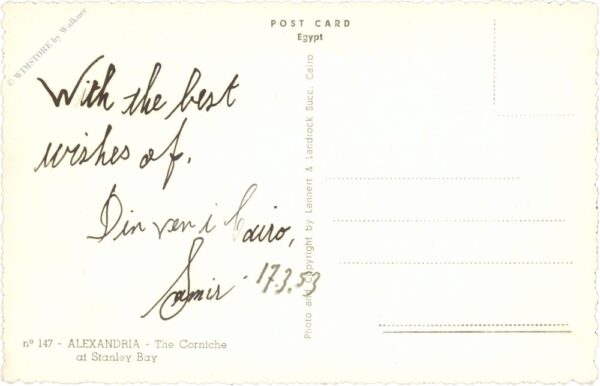 © WIMSTORE by Walkner
POST CARD
Egypt
With the best
wishes of.
Din ven i Cairo,
Samir 17.3.53
Photo and Copyright by Lehnert & Landrock Succ. Cairo
nº 147 - ALEXANDRIA - The Corniche
at Stanley Bay